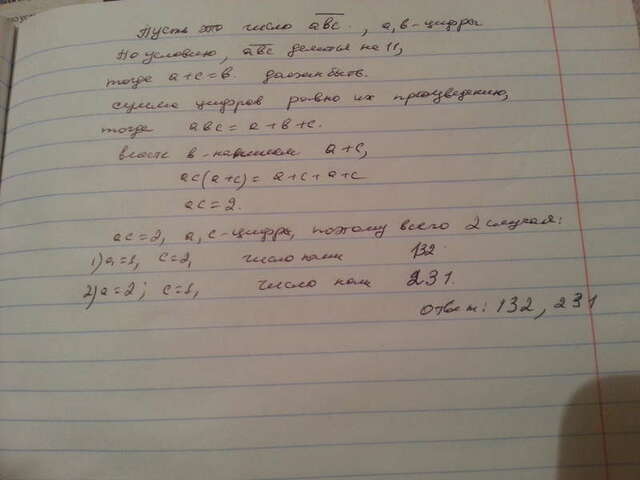 Пусть это число abc., a, b - цифры
По условию, abc делится на 11,
тогда a+c=b. должен быть.
сумма цифров равно их произведению,
тогда abc = a+b+c.
вместо b - напишем a+c,
ac(a+c) = a+c+a+c
ac=2.
ac=2, a, c - цифры, поэтому всего 2 случая:
1) a=1, c=2, число 132.
2) a=2; c=1, число 231.
Ответ: 132, 231